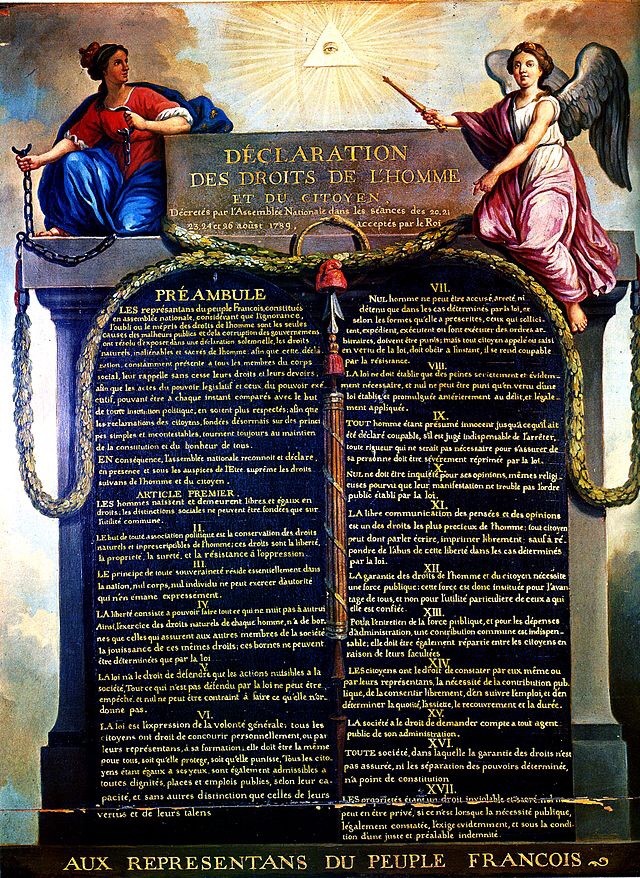 DÉCLARATION
DES DROITS DE L'HOMME
ET DU CITOYEN,
Décretés par l'Assemblée Nationale dans les séances des 20, 21
23, 24 et 26 août 1789, acceptés par le Roi
PRÉAMBULE
LES représantans du peuple Francois, constitués
en assemblée nationale, considérant que l'ignorance,
l'oubli ou le mépris des droits de l'homme sont les seules
causes des malheurs publics et de la corruption des gouvernemens
ont résolu d'exposer dans une déclaration solemnelle, les droits
naturels, inaliénables et sacrés de l'homme; afin que cette décla
ration, constamment présente a tous les membres du corps
social, leur rappelle sans cesse leurs droits et leurs devoirs,
afin que les actes du pouvoir legislatif et ceux du pouvoir exé
cutif, pouvant être a chaque instant comparés avec le but
de toute institution politique, en soient plus respectés; afin que
les reclamations des citoyens, fondées désormais sur des princi
pes simples et incontestables, tournent toujours au maintien
de la constitution et du bonheur de tous.
EN conséquence, l'assemblée nationale reconnoit et déclare,
en présence et sous les auspices de l'Etre suprême les droits
suivans de l'homme et du citoyen.
ARTICLE PREMIER.
LES hommes naissent et demeurent libres et égaux en
droits, les distinctions sociales ne peuvent être fondées que sur
l'utilité commune.
II.
LE but de toute association politique est la conservation des droits
naturels et imprescriptibles de l'homme; ces droits sont la liberté,
la propriété, la sureté, et la résistance à l'oppression.
III.
LE principe de toute souveraineté réside essentiellement dans
la nation, nul corps, nul individu ne peut exercer d'autorité
qui n'en émane expressement.
IV.
LA liberté consiste a pouvoir faire tout ce qui ne nuit pas à autrui
Ainsi, l'exercice des droits naturels de chaque homme, n'a de bor-
nes que celles qui assurent aux autres membres de la société
la jouissance de ces mêmes droits; ces bornes ne peuvent
être déterminées que par la loi
V.
LA loi n'a le droit de défendre que les actions nuisibles a la
société. Tout ce qui n'est pas défendu par la loi ne peut être
empêché, et nul ne peut être contraint à faire ce qu'elle n'or-
donne pas.
VI.
LA loi est l'expression de la volonté générale; tous les
citoyens ont droit de concourir personnellement, ou par
leurs représentans, à sa formation; elle doit être la même
pour tous, soit qu'elle protege, soit qu'elle punisse, Tous les cito
yens étant égaux a ses yeux, sont également admissibles a
toutes dignités, places et emplois publics, selon leur ca
pacité, et sans autres distinction que celles de leurs
vertus et de leurs talens
VII.
NUL homme ne peut être accusé, arreté, ni
détenu que dans les cas déterminés par la loi, et
selon les formes qu'elle a prescrites, ceux qui sollici-
tent, expédient, exécutent ou font exécuter des ordres ar-
bitraires, doivent être punis; mais tout citoyen appelé ou saisi
en vertu de la loi, doit obéir a l'instant, il se rend coupable
par la résistance.
VIII.
LA loi ne doit établir que des peines strictement et évidem-
ment nécessaire, et nul ne peut être puni qu'en vertu d'une
loi établie et promulguée antérierement au délit, et légale-
ment appliquée.
IX.
TOUT homme étant présumé innocent jusqu'a ce qu'il ait
été déclaré coupable, s'il est jugé indispensable de l'arrêter,
toute rigueur qui ne serait pas nécessaire pour s'assurer de
sa personne doit être sévèrement réprimée par la loi.
X.
NUL ne doit être inquiété pour ses opinions, mêmes religi
euses pourvu que leur manifestation ne trouble pas l'ordre
public établi par la loi.
XI.
LA libre communication des pensées et des opinions
est un des droits les plus precieux de l'homme; tout citoyen
peut dont parler écrire, imprimer librement: sauf a ré-
pondre de l'abus de cette liberté dans les cas déterminés
par la loi.
XII.
LA garantie des droits de l'homme et du citoyen nécessite
une force publique: cette force est donc instituée pour l'avan-
tage de tous, et non pour l'utilité particuliere de ceux a qui
elle est confiée.
XIII.
Pour l'entretien de la force publique, et pour les dépenses
d'administration, une contribution commune est indispen-
sable; elle doit être également répartie entre les citoyens en
raison de leurs facultées
XIV.
LES citoyens ont le droit de constater par eux même ou
par leurs représentans, la nécessité de la contribution pub-
lique, de la consentir librement, d'en suivre l'emploi, et d'en
déterminer la quotité, l'assiette, le recouvrement et la durée.
XV.
LA société a le droit de demander compte a tout agent
public de son administration.
XVI.
TOUTE société, dans laquelle la garantie des droits n'est
pas assurée, ni les séparation des pouvoirs déterminée,
n'a point de constitution
XVII.
LES proprietés étant un droit inviolable et sacré, nul ne
peut en être privé, si ce n'est lorsque la nécessité publique,
légalement constatée, l'exige evidemment, et sous la condi-
tion d'une juste et préalable indemnité.
AUX REPRESENTANS DU PEUPLE FRANCOIS